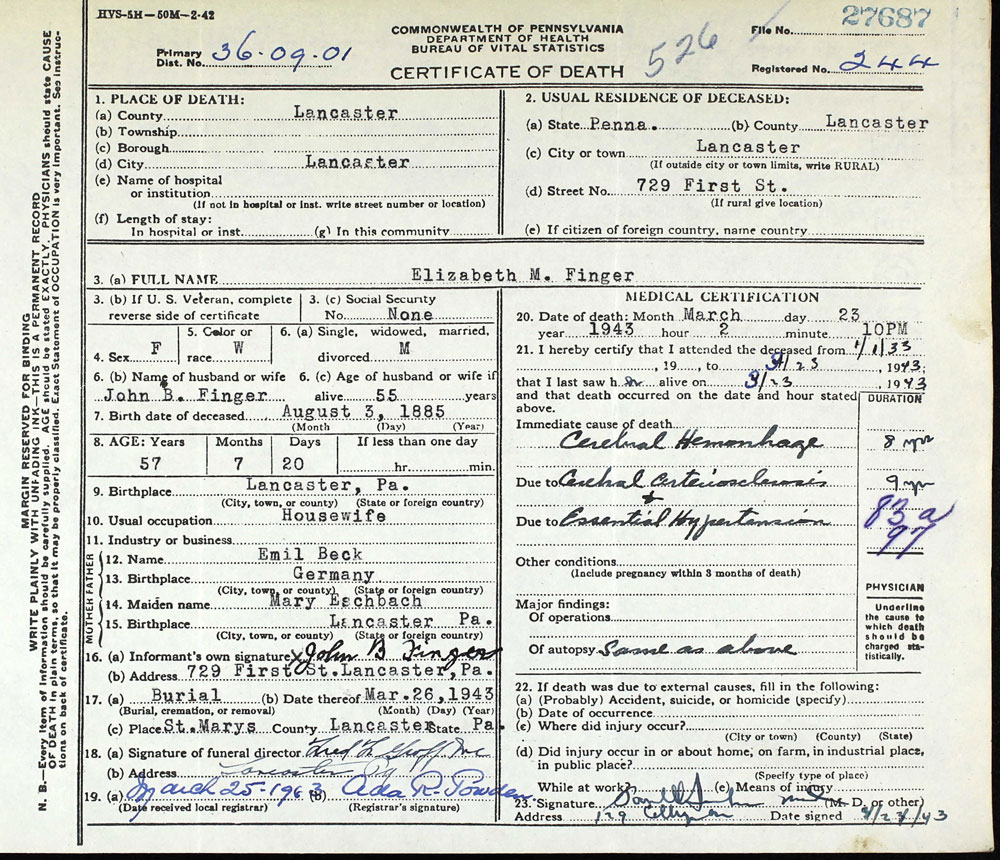 HVS-5H-50M-2-42
COMMONWEALTH OF PENNSYLVANIA
DEPARTMENT OF HEALTH
BUREAU OF VITAL STATISTICS
CERTIFICATE OF DEATH
526
File No. 27687
Primary Dist. No. 36-09-01
Registered No. 244
MARGIN RESERVED FOR BINDING
WRITE PLAINLY WITH UNFADING INK—THIS IS A PERMANENT RECORD
N. B.—Every item of information should be carefully supplied. AGE should be stated EXACTLY. PHYSICIANS should state CAUSE
OF DEATH in plain terms, so that it may be properly classified. Exact Statement of OCCUPATION is very important. See instruc-
tions on back of certificate.
1. PLACE OF DEATH:
(a) County Lancaster
(b) Township
(c) Borough
(d) City Lancaster
(e) Name of hospital
or institution
(If not in hospital or inst. write street number or location)
(f) Length of stay:
In hospital or inst. (g) In this community
2. USUAL RESIDENCE OF DECEASED:
(a) State Penna. (b) County Lancaster
(c) City or town Lancaster
(If outside city or town limits, write RURAL)
(d) Street No. 729 First St.
(If rural give location)
(e) If citizen of foreign country, name country
3. (a) FULL NAME Elizabeth M. Finger
3. (b) If U. S. Veteran, complete
reverse side of certificate
3. (c) Social Security
No. None
4. Sex F
5. Color or
race W
6. (a) Single, widowed, married,
divorced M
6. (b) Name of husband or wife
John B. Finger
6. (c) Age of husband or wife if
alive 55 years
7. Birth date of deceased August 3, 1885
(Month) (Day) (Year)
8. AGE: Years Months Days If less than one day
57 7 20 hr. min.
9. Birthplace Lancaster, Pa.
(City, town, or county) (State or foreign country)
10. Usual occupation Housewife
11. Industry or business
FATHER
12. Name Emil Beck
13. Birthplace Germany
(City, town, or county) (State or foreign country)
MOTHER
14. Maiden name Mary Eschbach
15. Birthplace Lancaster Pa.
(City, town, or county) (State or foreign country)
16. (a) Informant's own signature x John B Finger
(b) Address 729 First St. Lancaster, Pa.
17. (a) Burial (b) Date thereof Mar. 26, 1943
(Burial, cremation, or removal) (Month) (Day) (Year)
(c) Place St. Marys County Lancaster State Pa.
18. (a) Signature of funeral director Fred F. Groff Inc
(b) Address Lancaster Pa
19. (a) March 25-1943 (b) Ada R. Powden
(Date received local registrar) (Registrar's signature)
MEDICAL CERTIFICATION
20. Date of death: Month March day 23
year 1943 hour 2 minute 10PM
21. I hereby certify that I attended the deceased from 1/1/33
, 19 , to 3/23 , 1943;
that I last saw her alive on 3/23 , 1943
and that death occurred on the date and hour stated
above.
DURATION
Immediate cause of death
Cerebral Hemorrhage 8
Due to Cerebral Arteriosclerosis 9
&
Due to Essential Hypertension
83a
97
Other conditions
(Include pregnancy within 3 months of death)
Major findings:
Of operations
Of autopsy Same as above
PHYSICIAN
Underline
the cause to
which death
should be
charged sta-
tistically.
22. If death was due to external causes, fill in the following:
(a) (Probably) Accident, suicide, or homicide (specify)
(b) Date of occurrence
(c) Where did injury occur?
(City or town) (County) (State)
(d) Did injury occur in or about home, on farm, in industrial place,
in public place?
(Specify type of place)
While at work? (e) Means of injury
23. Signature (M. D. or other)
Address 129 Date signed